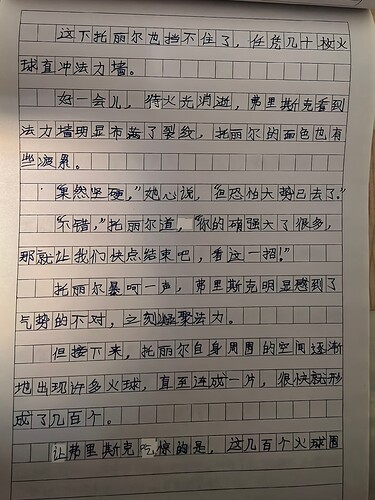 这下托丽尔也挡不住了，任凭几十枚火
球直冲法力墙。
好一会儿，待火光消逝，弗里斯克看到
法力墙明显布满了裂纹，托丽尔的面色也有
些疲惫。
“果然坚硬，”她心说，“但恐怕大势已去了。”
“不错，”托丽尔道，“你的确强大了很多，
那就让我们快点结束吧，看这一招！”
托丽尔暴呵一声，弗里斯克明显感到了
气势的不对，立刻凝聚法力。
但接下来，托丽尔自身周围的空间逐渐
地出现许多火球，直至连成一片，很快就形
成了几百个。
让弗里斯克吃惊的是，这几百个火球围